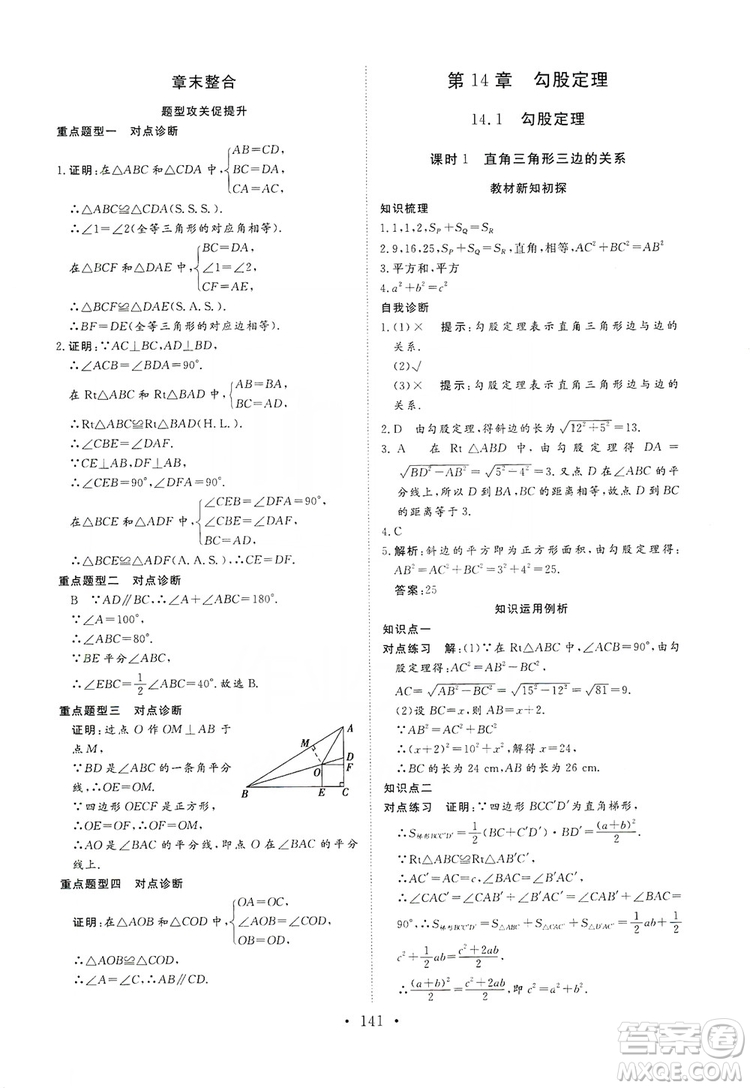 章末整合
题型攻关促提升
重点题型一 对点诊断
1.证明:在△ABC和△CDA中,{AB=CD, BC=DA, CA=AC,
∴△ABC≌△CDA(S.S.S).
∴∠1=∠2(全等三角形的对应角相等)
在△BCF和△DAE中,{BC=DA, ∠1=∠2, CF=AE,
∴△BCF≌△DAE(S.A.S).
∴BF=DE(全等三角形的对应边相等)
2.证明:∵AC⊥BC,AD⊥BD,
∴∠ACB=∠BDA=90°.
在Rt△ABC和Rt△BAD中,{AB=BA, BC=AD,
∴Rt△ABC≌Rt△BAD(H.L.).
∴∠CBE=∠DAF.
∵CE⊥AB,DF⊥AB,
∴∠CEB=90°,∠DFA=90°.
在△BCE和△ADF中,{∠CEB=∠DFA=90°, ∠CBE=∠DAF, BC=AD,
∴△BCE≌△ADF(A.A.S).∴CE=DF.
重点题型二 对点诊断
B ∵AD∥BC,∴∠A+∠ABC=180°.
∵∠A=100°,
∴∠ABC=80°.
∵BE平分∠ABC,
∴∠EBC=1/2∠ABC=40°.故选B.
重点题型三 对点诊断
证明:过点O作OM⊥AB于
点M,
∵BD是∠ABC的一条角平分
线,∴OE=OM.
∵四边形OECF是正方形,
∴OE=OF=OM.
∴AO是∠BAC的平分线,即点O在∠BAC的平分
线上.
A
M
D
O
F
B
E
C
重点题型四 对点诊断
证明:在△AOB和△COD中,{OA=OC, ∠AOB=∠COD, OB=OD,
∴△AOB≌△COD.
∴∠A=∠C.∴AB∥CD.
第14章 勾股定理
14.1 勾股定理
课时1 直角三角形三边的关系
教材新知初探
知识梳理
1.1,1,2,S_P+S_Q=S_R
2.9,16,25,S_P+S_Q=S_R,直角,相等,AC²+BC²=AB²
3.平方和,平方
4.a²+b²=c²
自我诊断
1.(1)× 提示:勾股定理表示直角三角形边与边的
关系.
(2)√
(3)× 提示:勾股定理表示直角三角形边与边的
关系.
2.D 根据勾股定理,得斜边的长为√(12²+5²)=13.
3.A 在Rt△ABD中,根据勾股定理得DA=
√(BD²-AB²)=√(5²-4²)=3.又点D在∠BCA的平
分线上,所以点D到BC的距离等于AD,所以距离
等于3.
4.C
5.解析:斜边的平方即为正方形面积,由勾股定理得
AB²=AC²+BC²=3²+4²=25.
答案:25
知识运用例析
知识点一
对点练习 解:(1)∵在Rt△ABC中,∠C=90°,由勾
股定理得:AC²=AB²-BC²,
AC=√(AB²-BC²)=√(15²-12²)=√81=9.
(2)设BC=x,AB=x+2,
∵AB²=AC²+BC²,
∴(x+2)²=10²+x²,
∴x=24,
∴BC的长为24 cm,AB的长为26 cm.
知识点二
对点练习 证明:∵四边形BCC′D′为直角梯形,
∴S梯形BCC′D′=1/2(BC+C′D′)·BD′=(a+b)²/2.
∵Rt△ABC≌Rt△AB′C′,
∴AC′=AC=c,∠BAC=∠B′AC′.
∴∠CAC′=∠CAB′+∠B′AC′=∠CAB′+∠BAC=
90°.∴S梯形BCC′D′=S△ABC+S△CAC′+S△D′AC′=1/2ab+1/2
c²+1/2ab=(c²+2ab)/2.
∴(a+b)²/2=(c²+2ab)/2.即a²+b²=c².
· 141 ·
答案圈